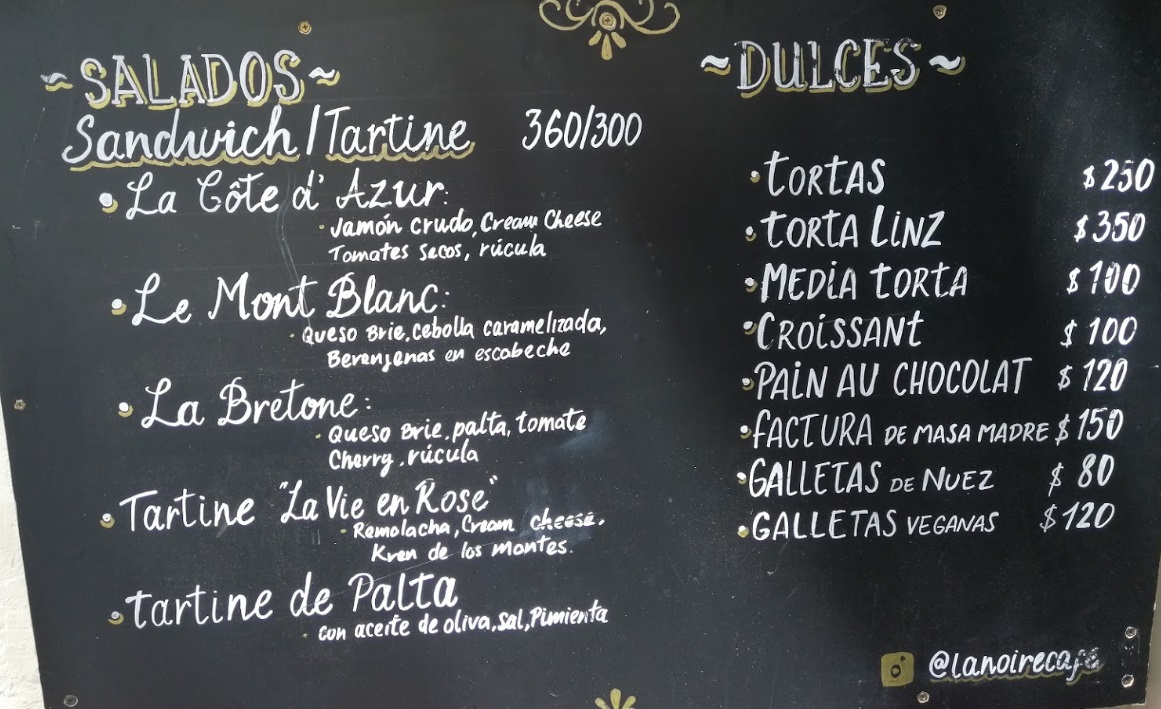 ~SALADOS~
Sandwich/Tartine 360/300
• La Côte d' Azur:
· Jamón crudo, Cream Cheese
Tomates secos, rúcula
• Le Mont Blanc:
· Queso Brie, cebolla caramelizada,
Berenjenas en escabeche
• La Bretone:
· Queso Brie, palta, tomate
Cherry, rúcula
• Tartine "La Vie en Rose"
· Remolacha, Cream cheese,
Kren de los montes.
• tartine de Palta
· con aceite de oliva, sal, Pimienta
~DULCES~
• TORTAS $250
• TORTA LINZ $350
• MEDIA TORTA $100
• CROISSANT $100
• PAIN AU CHOCOLAT $120
• FACTURA DE MASA MADRE $150
• GALLETAS DE NUEZ $80
• GALLETAS VEGANAS $120
@lanoirecafe